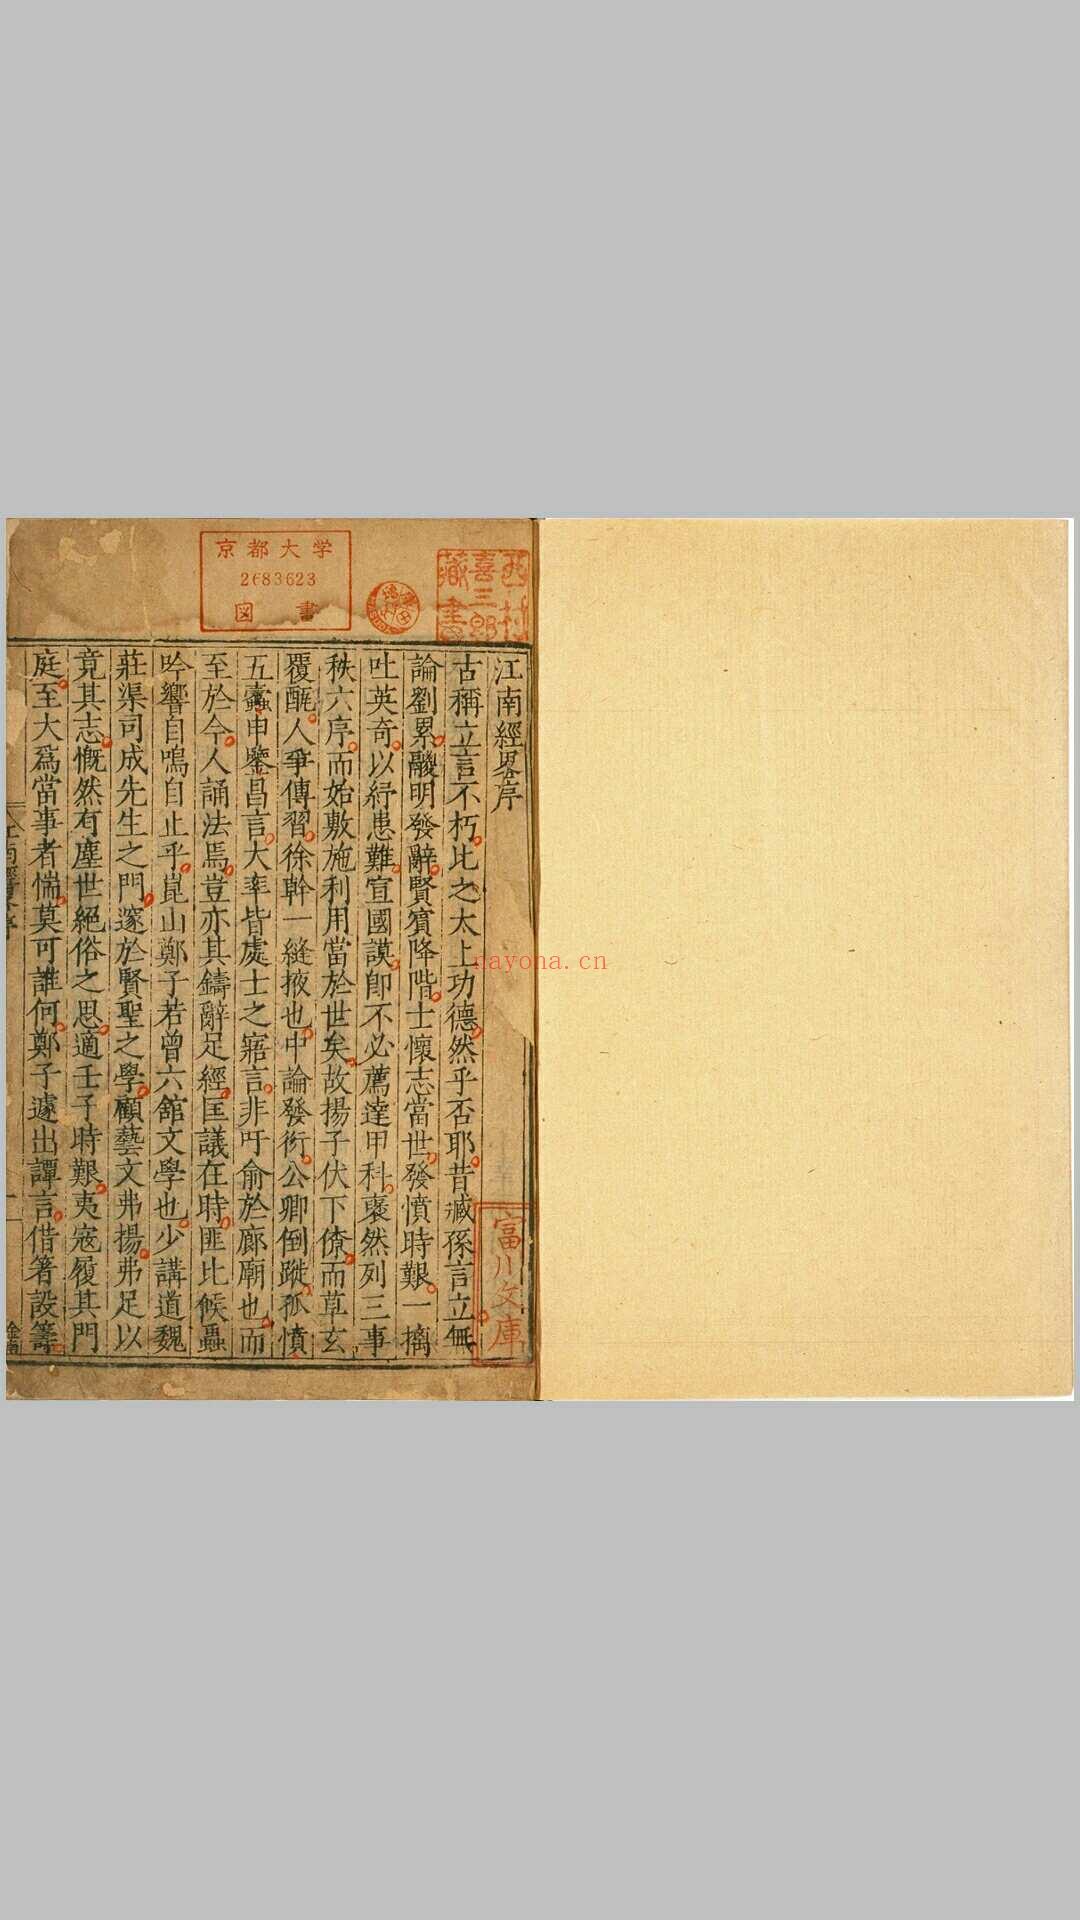 京都大学
2683623
図書
西村
喜三郎
藏書
江南經畧序
古稱立言不朽比之太上功德然乎否耶昔臧孫言立無
論劉累鬷明發辭賢賓降階士懷志當世發憤時艱一摛
吐英奇以紓患難宣國謨卽不必薦達甲科褎然列三事
秩六序而始敷施利用當於世矣故揚子伏下僚而草玄
覆瓿人爭傳習徐幹一縫掖也中論發衒公卿倒蹝孤憤
五蠹申鑒昌言大率皆處士之寤言非吁俞於廊廟也而
至於今人誦法焉豈亦其鑄辭足經匡議在時匪比候蟲
吟響自鳴自止乎崑山鄭子若曾六舘文學也少講道魏
莊渠司成先生之門邃於賢聖之學顧藝文弗揚弗足以
竟其志慨然有塵世絕俗之思適壬子時艱夷寇履其門
庭至大爲當事者惴莫可誰何鄭子遽出譚言借箸設籌
富川文庫
nayona.cn